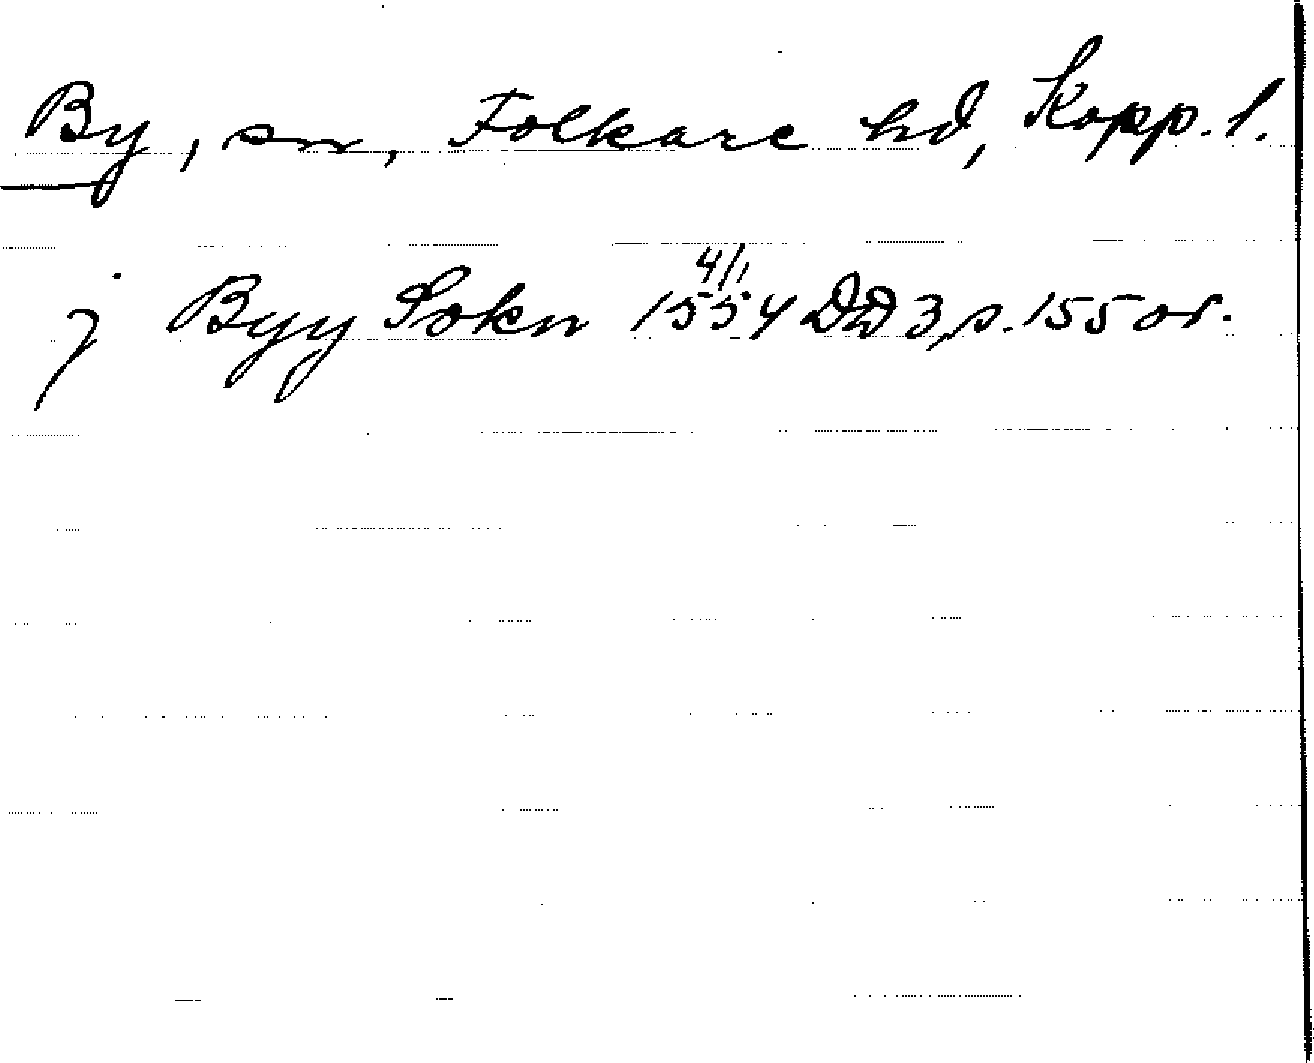 By, sn, Folkare hd, Kopp. l.
j Byy Sokn 4/1 1554 DD 3, s. 155 or.